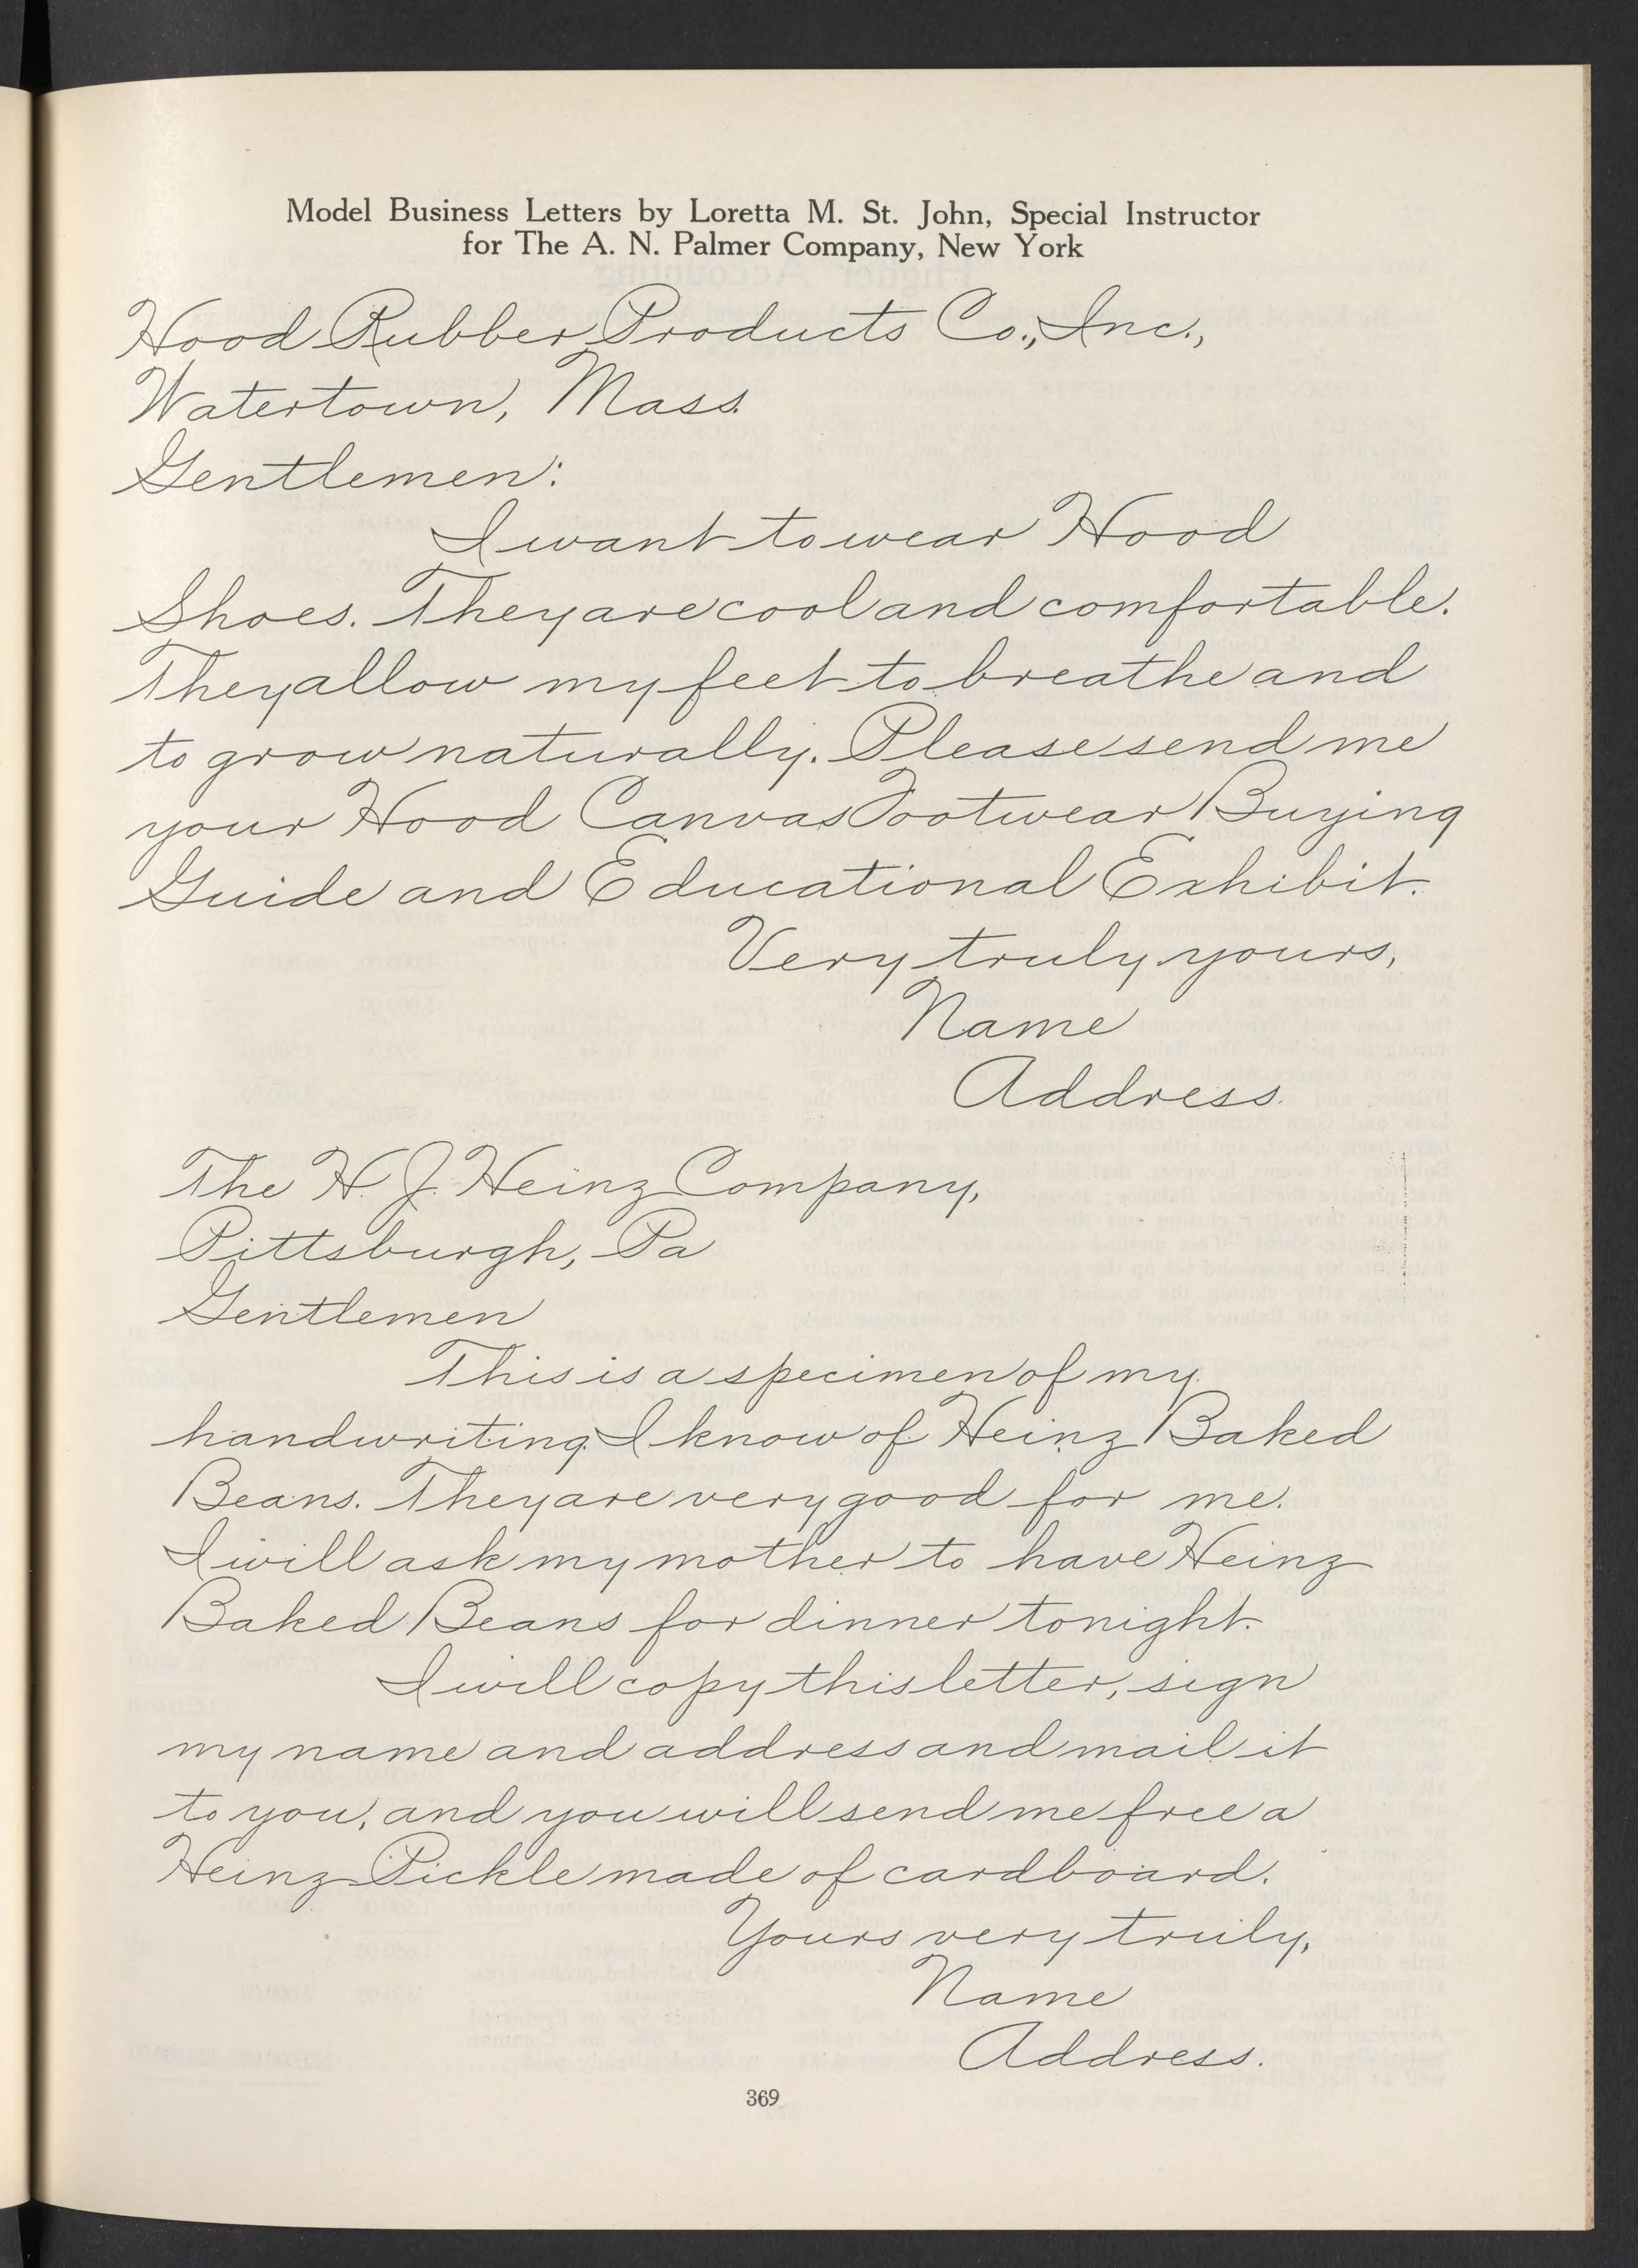 Model Business Letters by Loretta M. St. John, Special Instructor
for The A. N. Palmer Company, New York
Hood Rubber Products Co., Inc.,
Watertown, Mass.
Gentlemen:
I want to wear Hood
Shoes. They are cool and comfortable.
They allow my feet to breathe and
to grow naturally. Please send me
your Hood Canvas Footwear Buying
Guide and Educational Exhibit.
Very truly yours,
Name
Address.
The H. J. Heinz Company,
Pittsburgh, Pa
Gentlemen
This is a specimen of my
handwriting. I know of Heinz Baked
Beans. They are very good for me.
I will ask my mother to have Heinz
Baked Beans for dinner tonight.
I will copy this letter, sign
my name and address and mail it
to you, and you will send me free a
Heinz Pickle made of cardboard.
Yours very truly,
Name
Address.
369